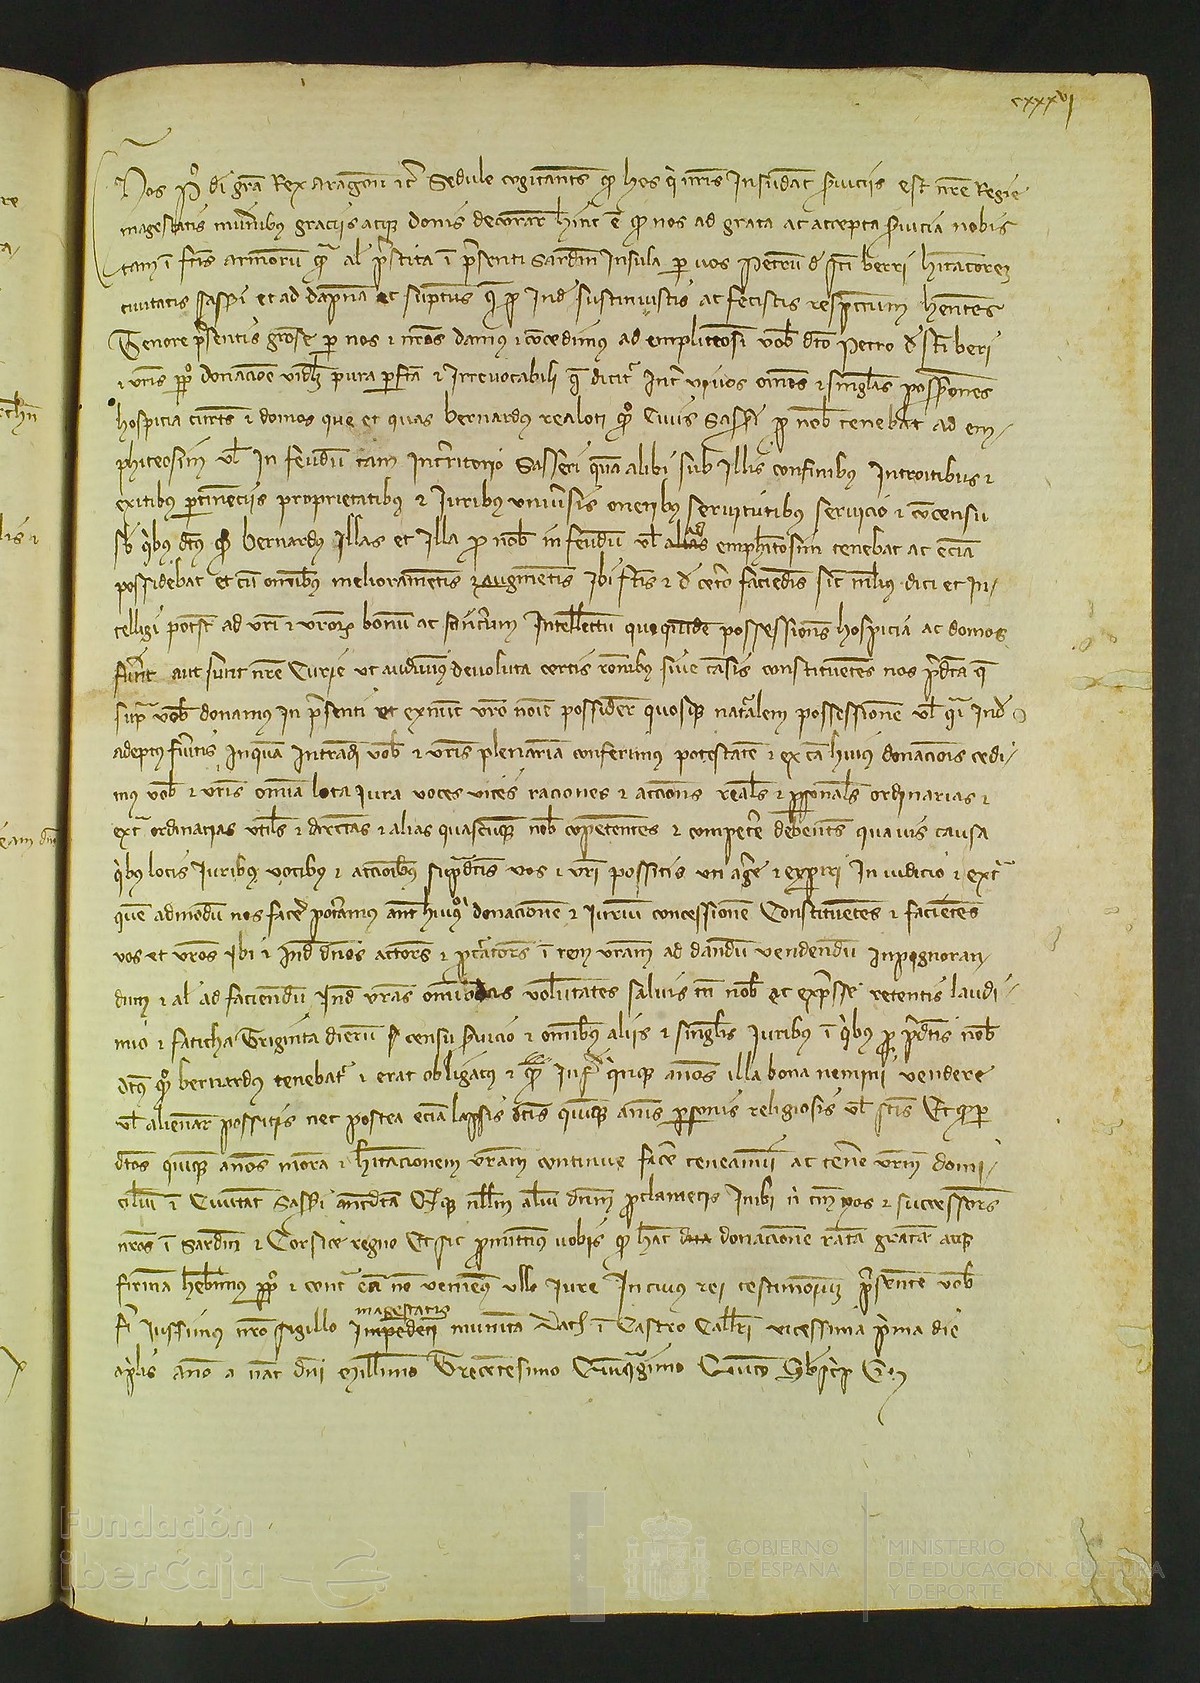 cxxxvj
Nos P. di gra Rex Aragon etc Sedule cogitantes qd hos qi nris Insudat serviciis est nre Regie
magestatis muneribus graciis atqz donis decorare hinc e qd nos ad grata ac accepta servicia nobis
tam i ftis armorum qm al prestita i presenti Sardin Insula per vos Petrum d sti berri hitatorem
civitatis Sasseri et ad dapna et suptus que pp Ind sustinuistis ac fecistis respectum hentes
Tenore presentis grose per nos et nros damus et concedimus ad emphiteosi vob dto Petro d sti beri
et vris ppo donacioe vidz pura perfta et Irrevocabili que dicitr Intr vivos omes et singlas possessiones
hospicia curtes et domos que et quas bernardus realoti qo Civis Sasseri p nob tenebat ad em-
phiteosim vl In feudum tam Interritorio Sasseri quam alibi sub Illis confinibus Introitibus et
exitibus pertinenciis proprietatibus et Iuribus universis oneribus servitutibus servicio et concensu
sb qibus dtus qo Bernardus Illas et Illa p nob in feudum vl ad emphitosim tenebat ac eciam
possidebat et cum omnibus melioramentis et augmentis Ibi ftis et d cetero faciendis sic melius dici et In-
telligi potest ad vri et vrorum bonum ac sincerum Intellectum quequidem possessiones hospicia ac domos
fuerit aut sunt nre Curie ut audivimus devoluta certis ronibus sive causis constituentes nos predta que
supra vob donamus In presenti et exnunc vro noie possidere quosqz naturalem possessionem vl qsi Ind
adeptus fueritis Inquam Intrandi vob et vris plenariam conferimus potestatem et ex ca huius donacionis cedi-
mus vob et vris omia loca Iura voces vices raciones et acciones reales et personales ordinarias et
extra ordinarias utiles et directas et alias quascumqz nob competentes et competere debentes quavis causa
qibus locis Iuribus vocibus et accionibus suppradtis vos et vri possitis uti agere et experiri In iudicio et extra
quem admodum nos facere poteramus ante huiusmodi donacionem et Iurium concessionem Constituentes et facientes
vos et vros Ibi et Ind dnos actores et procuratores i rem vram ad dandum vendendum Inpignoran-
dum et al ad faciendum Ind vras omiodas voluntates salvis tn nob ac expresse retentis laudi-
mio et faticha Triginta dierum censu servicio et omnibus aliis et singulis Iuribus i qibus pro predtis nob
dtus qo bernardus tenebatr et erat obligatus et qd Infra qinqz anos illa bona nemini vendere
vl alienare possitis nec postea eciam lapsis dtis quinqz anis personis religiosis vl stis Et qd per
dtos quinqz anos mora et hitacionem vram continue facere teneamini ac tenere vrm domi-
cilium i Civitate Sasseri antedta Et qz nllm alium dnum proclametis Inibi ni tm nos et successores
nros i Sardin et Corsice regno Et sic promittimus vobis qd hac donacionem ratam gratam atqz
firmam hebimus ppo et contra eam no veniemus ullo Iure In cuius rei testimonium presentem vob
fi Iussimus nro sigillo magestatis Inpedeti munitam Dat i Castro Calleri vicessima prima die
aprilis Ano a nat dni Millimo Trecentesimo Quinquagimo Quinto Subscrip G